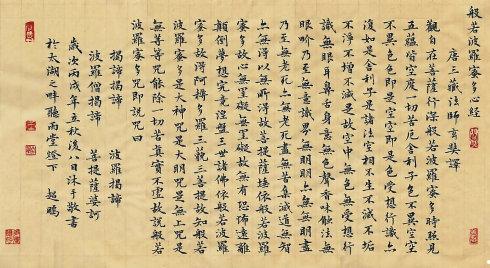 般若波羅蜜多心經
唐三藏法師玄奘譯
觀自在菩薩行深般若波羅蜜多時照見
五蘊皆空度一切苦厄舍利子色不異空空
不異色色即是空空即是色受想行識亦
復如是舍利子是諸法空相不生不滅不垢
不淨不增不減是故空中無色無受想行
識無眼耳鼻舌身意無色聲香味觸法無
眼界乃至無意識界無無明亦無無明盡
乃至無老死亦無老死盡無苦集滅道無智
亦無得以無所得故菩提薩埵依般若波羅
蜜多故心無罣礙無罣礙故無有恐怖遠離
顛倒夢想究竟涅槃三世諸佛依般若波羅
蜜多故得阿耨多羅三藐三菩提故知般若
波羅蜜多是大神咒是大明咒是無上咒是
無等等咒能除一切苦真實不虛故說般若
波羅蜜多咒即說咒曰
揭諦揭諦 波羅揭諦
波羅僧揭諦 菩提薩婆訶
歲次丙戌年立秋後八日沐手敬書
於太湖之畔聽雨堂燈下 趙鵬